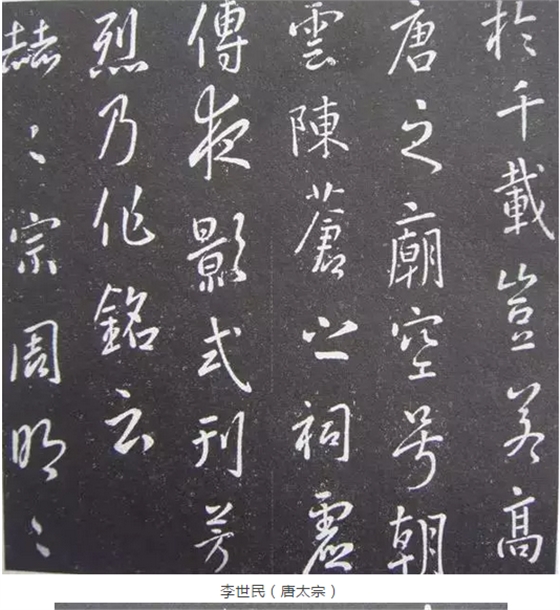 於千載豈若高
唐之廟空号朝
雲陳蒼之祠虛
傳夜影式刊芳
烈乃作銘云
赫〻宗周明〻
李世民（唐太宗）